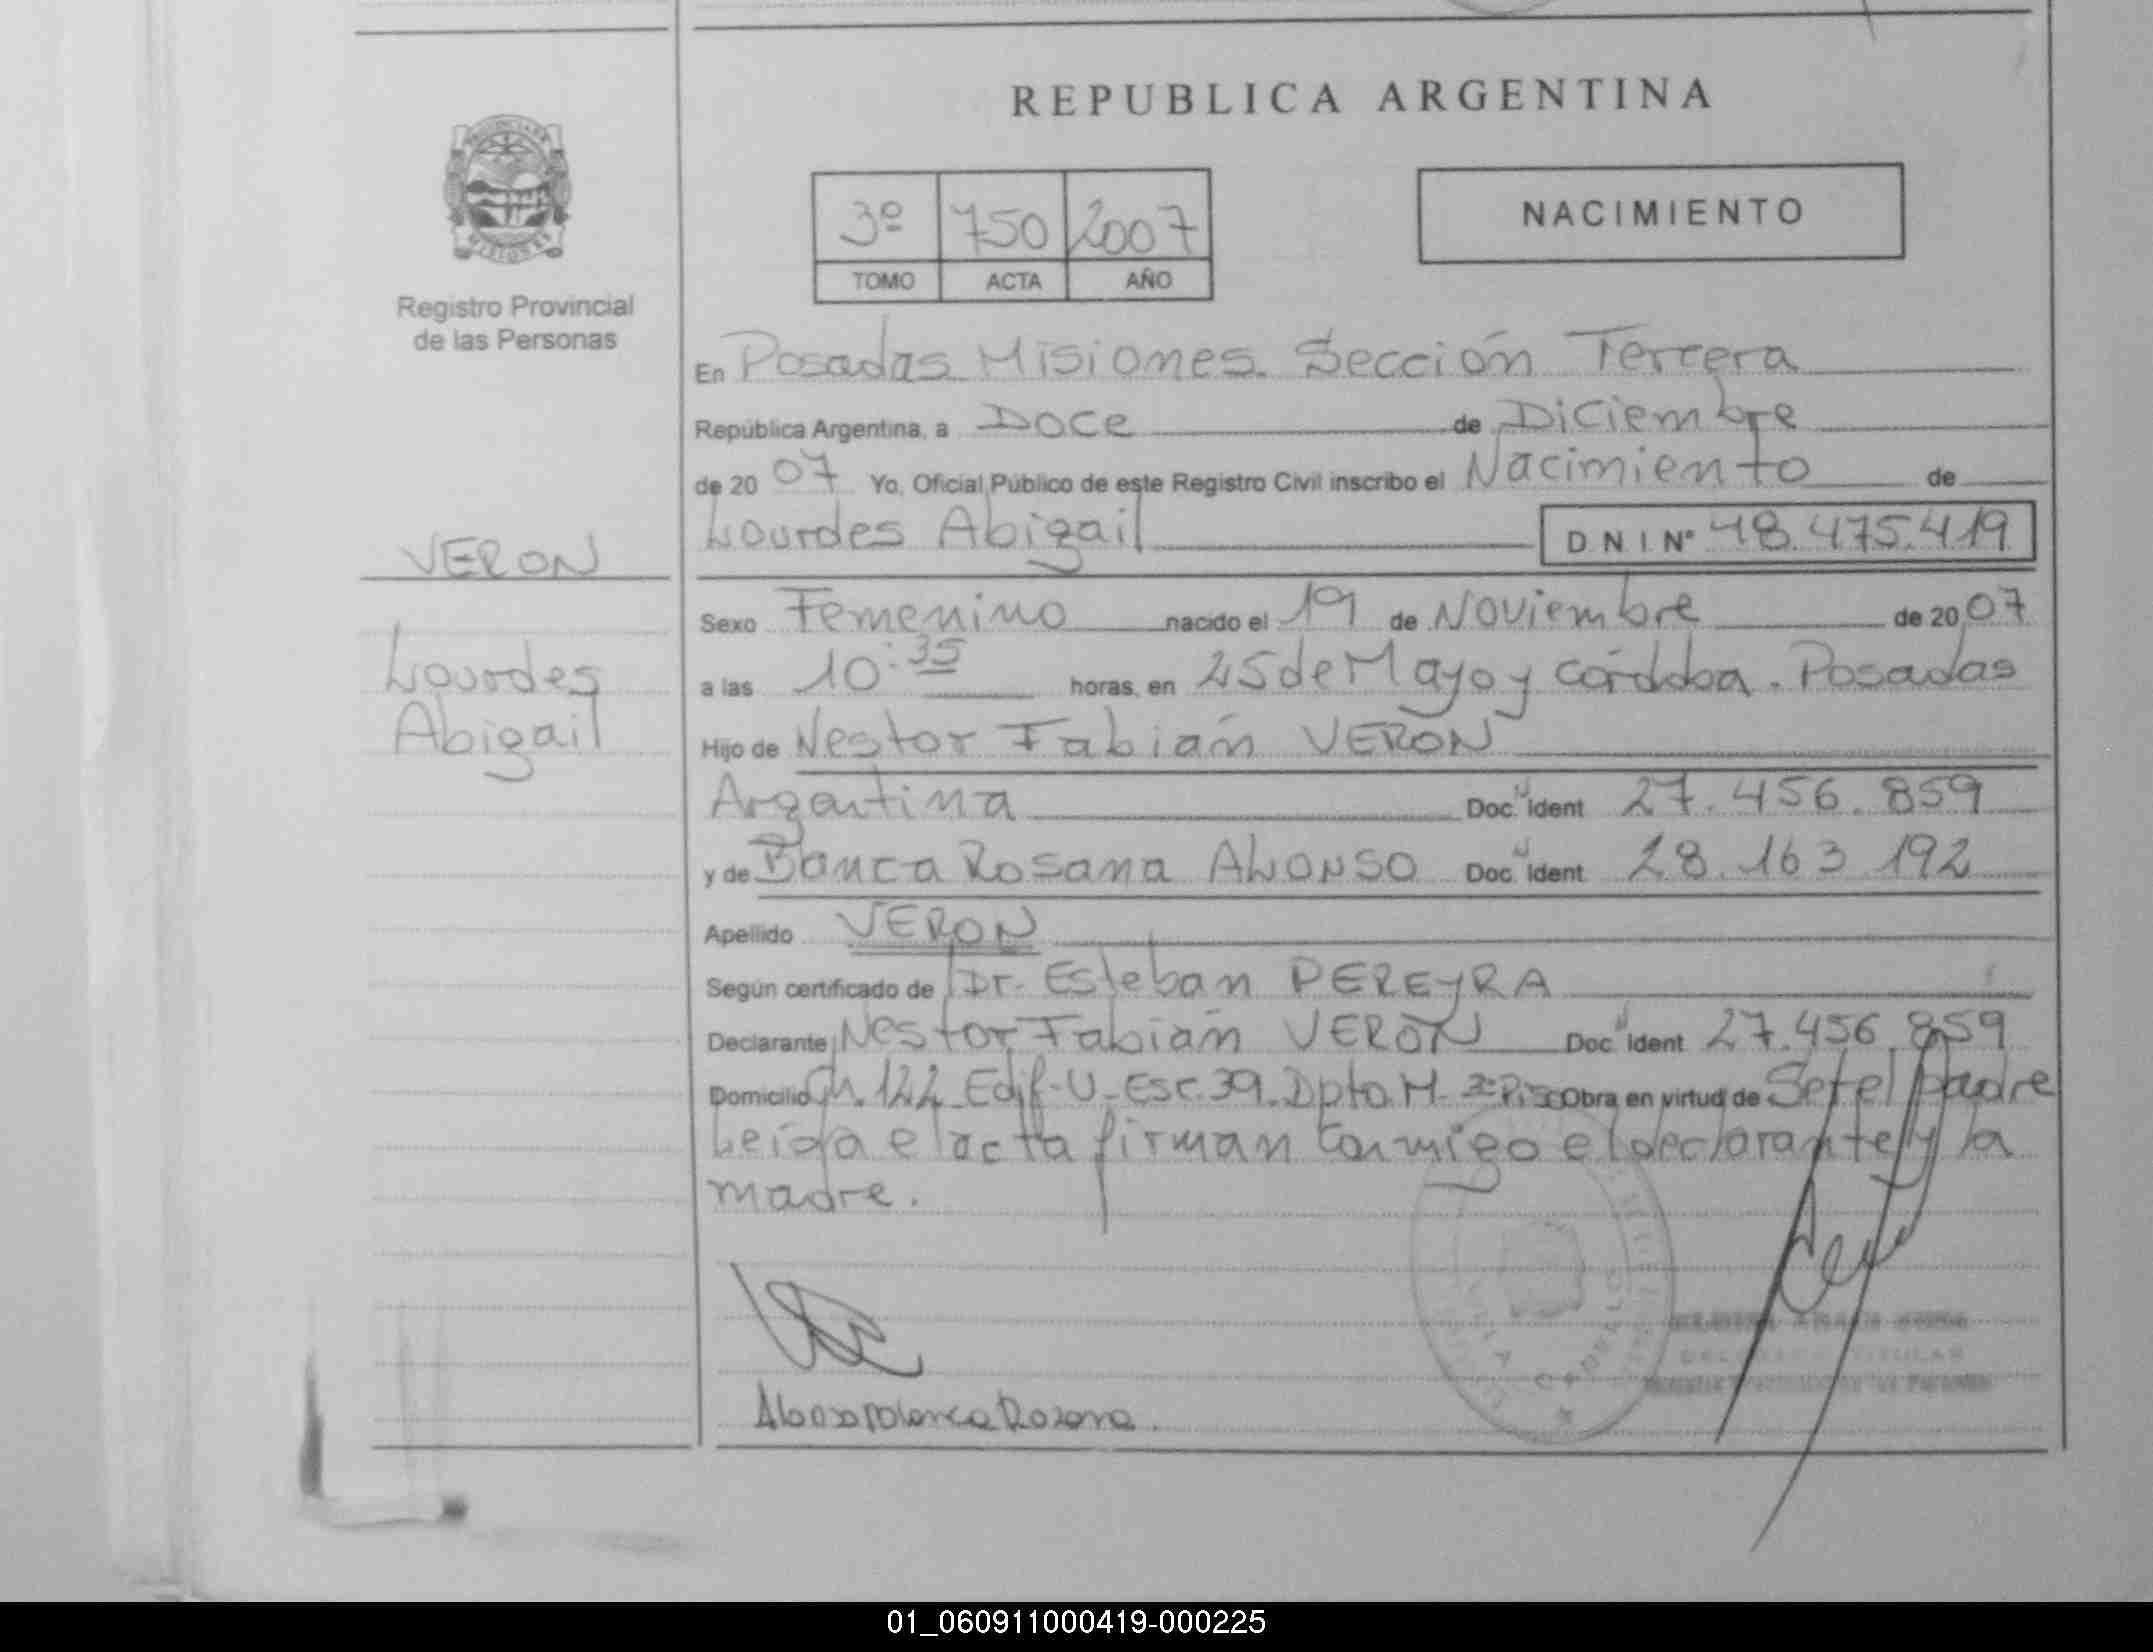 REPUBLICA ARGENTINA
3º 750 2007
TOMO ACTA AÑO
NACIMIENTO
PROVINCIA DE
MISIONES
Registro Provincial
de las Personas
En Posadas Misiones. Sección Tercera
República Argentina, a Doce de Diciembre
de 20 07 Yo, Oficial Público de este Registro Civil inscribo el Nacimiento de
Lourdes Abigail D N I Nº 48.475.419
VERON
Lourdes
Abigail
Sexo Femenino nacido el 19 de Noviembre de 20 07
a las 10:35 horas, en 25 de Mayo y Córdoba. Posadas
Hijo de Nestor Fabián VERON
Argentina Doc. Ident 27.456.859
y de Blanca Rosana ALONSO Doc. Ident 28.163.192
Apellido VERON
Según certificado de Dr. Esteban PEREYRA
Declarante Nestor Fabián VERON Doc. Ident 27.456.859
Domicilio Ch. 122 Edif-U-Esc.39-Dpto.M- Piso Obra en virtud de Ser el padre
Leida el acta firman conmigo el declarante y la
madre.
Alonso Blanca Rosana.
01_060911000419-000225